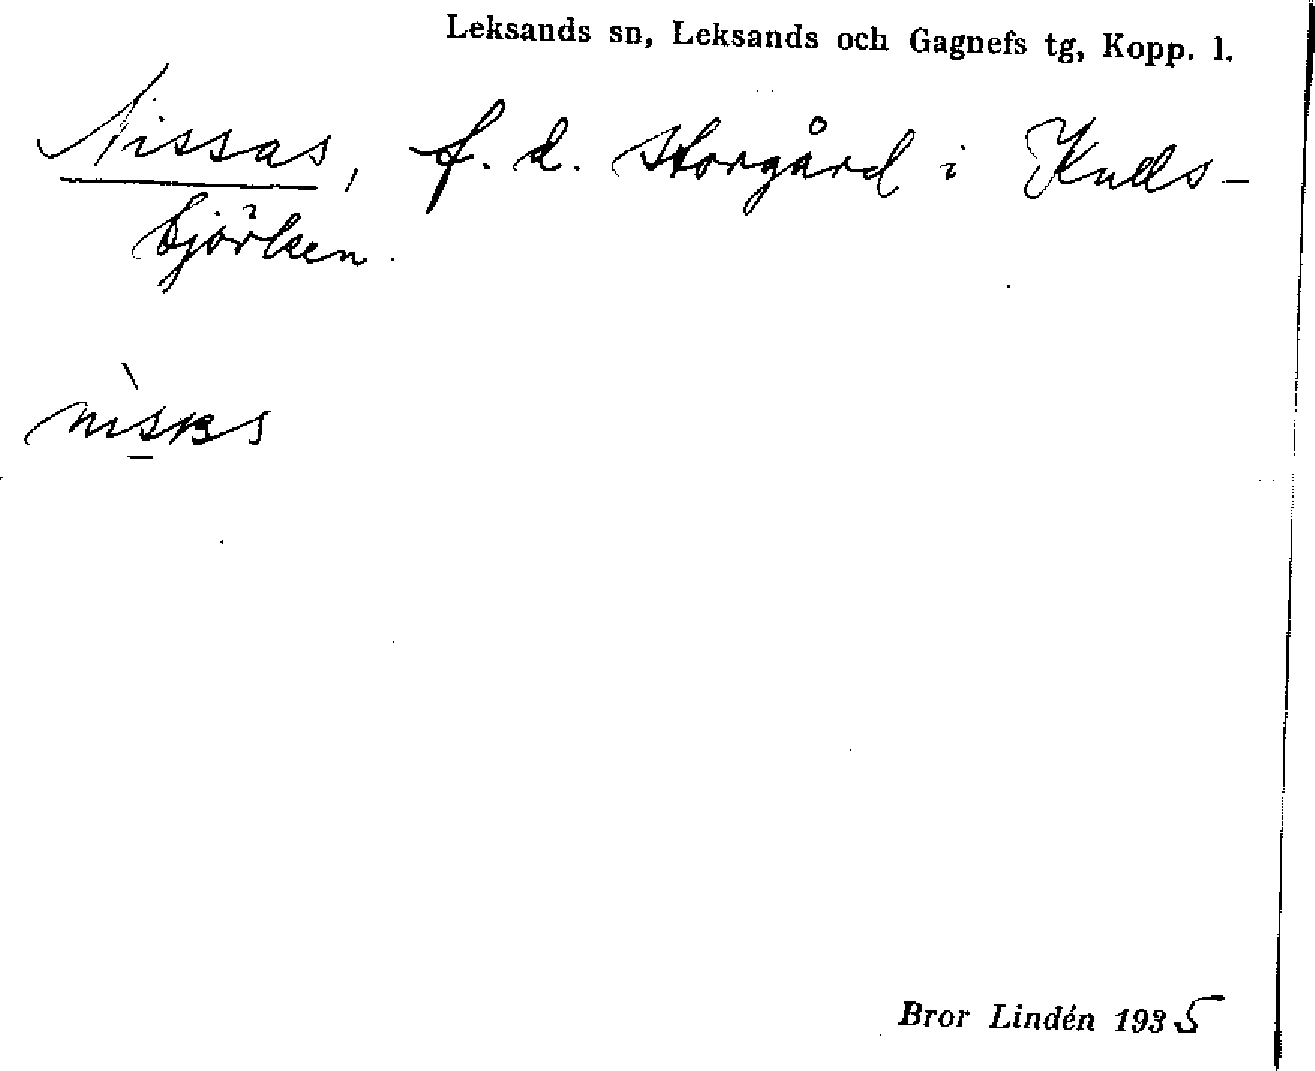 Leksands sn, Leksands och Gagnefs tg, Kopp. l.
Nissas, f. d. storgård i Kulls-
björken.
Bror Lindén 1935